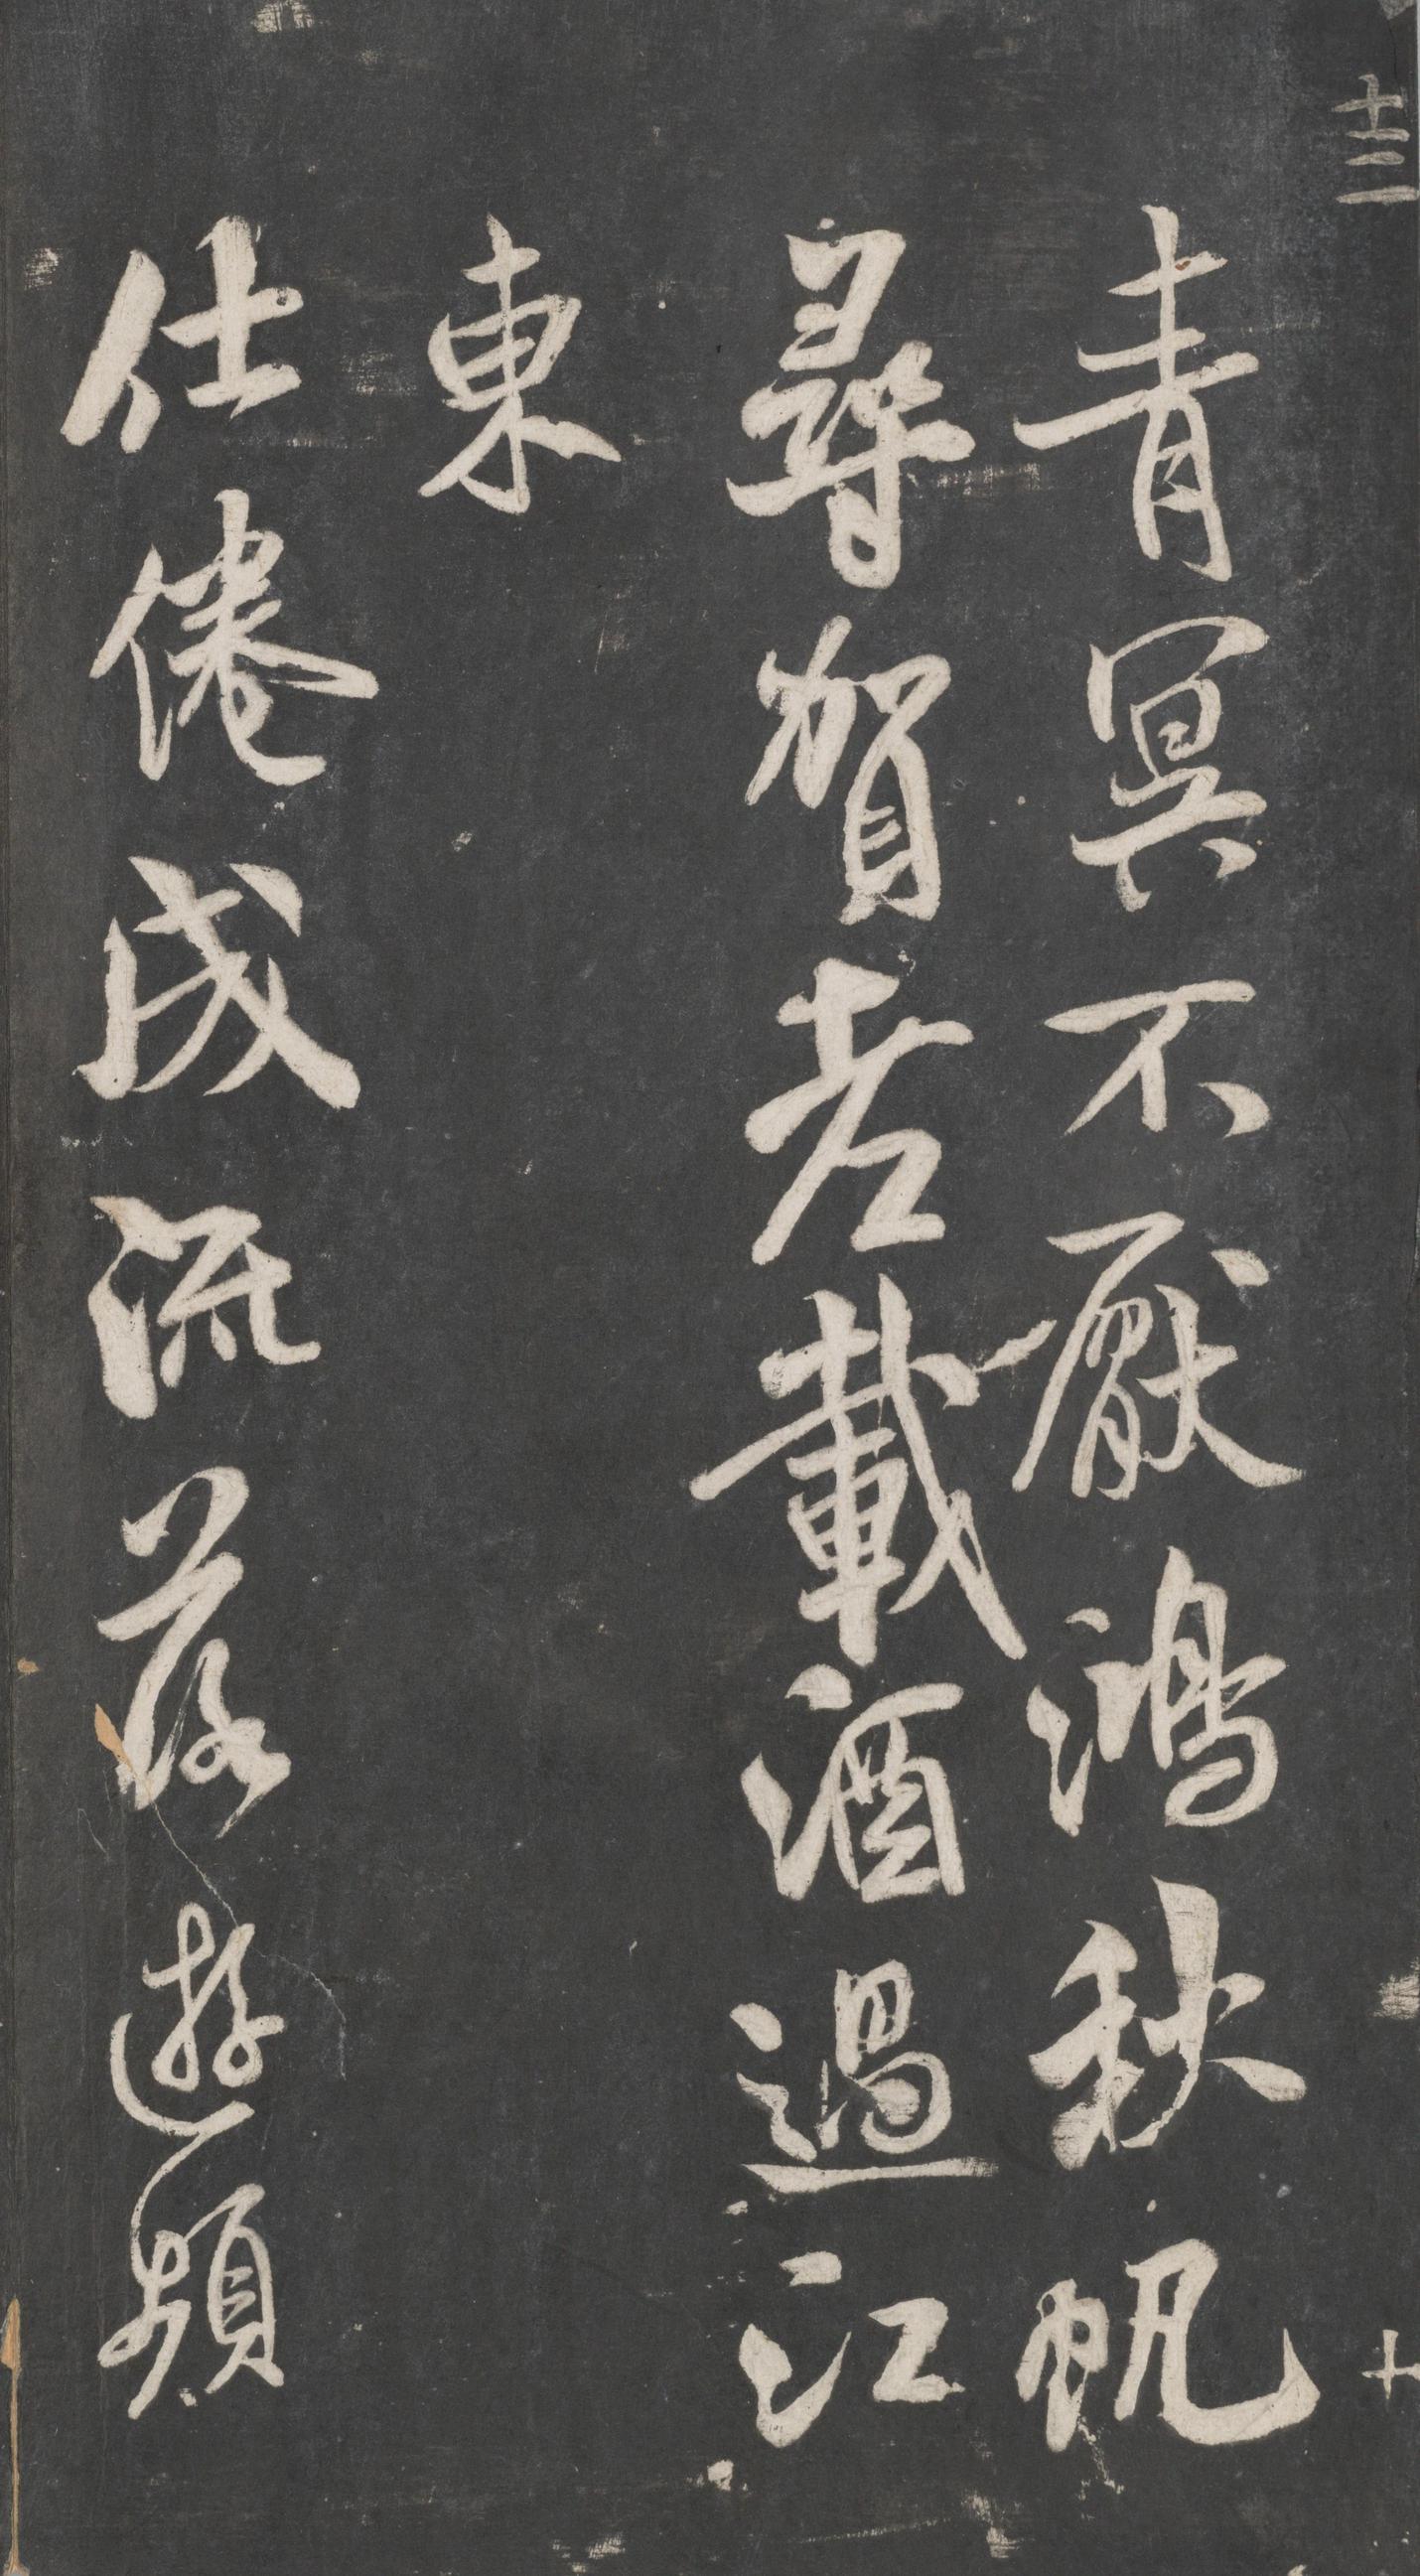 十三
十
青冥不厭鴻秋帆
尋賀老載酒過江
東
仕倦成流落遊頻